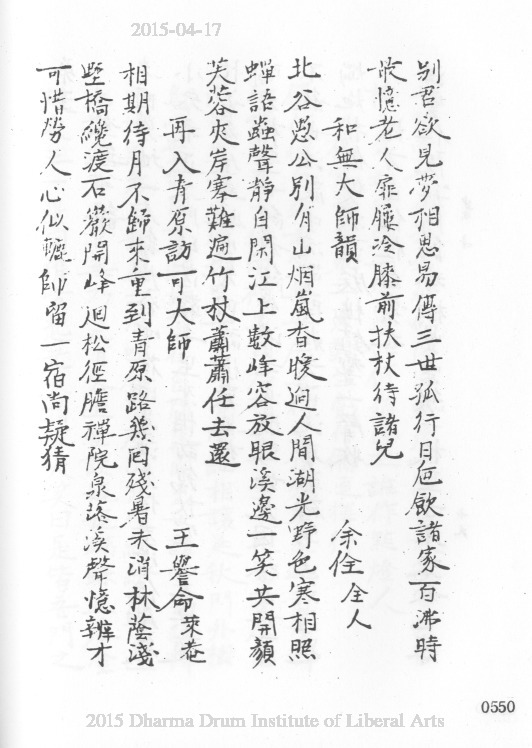 2015-04-17
別君欲見夢相思易傳三世孤行日巵飲諸家百沸時
最憶老人扉臒冷膝前扶杖待諸兒
和無大師韻
余佺全人
北谷愚公別有山烟嵐杳晚逈人間湖光野色寒相照
蟬語蟲聲靜自閑江上數峰容放眼溪邊一笑共開顏
芙蓉夾岸寒難遍竹杖蕭蕭任去還
再入青原訪可大師
王譽命萊菴
相期待月不歸來重到青原路幾回殘暑未消林蔭淺
墅橋纔渡石巖開峰迴松徑膽禪院泉落溪聲憶辨才
可惜勞人心似轆師留一宿尚疑猜
0550
2015 Dharma Drum Institute of Liberal Arts